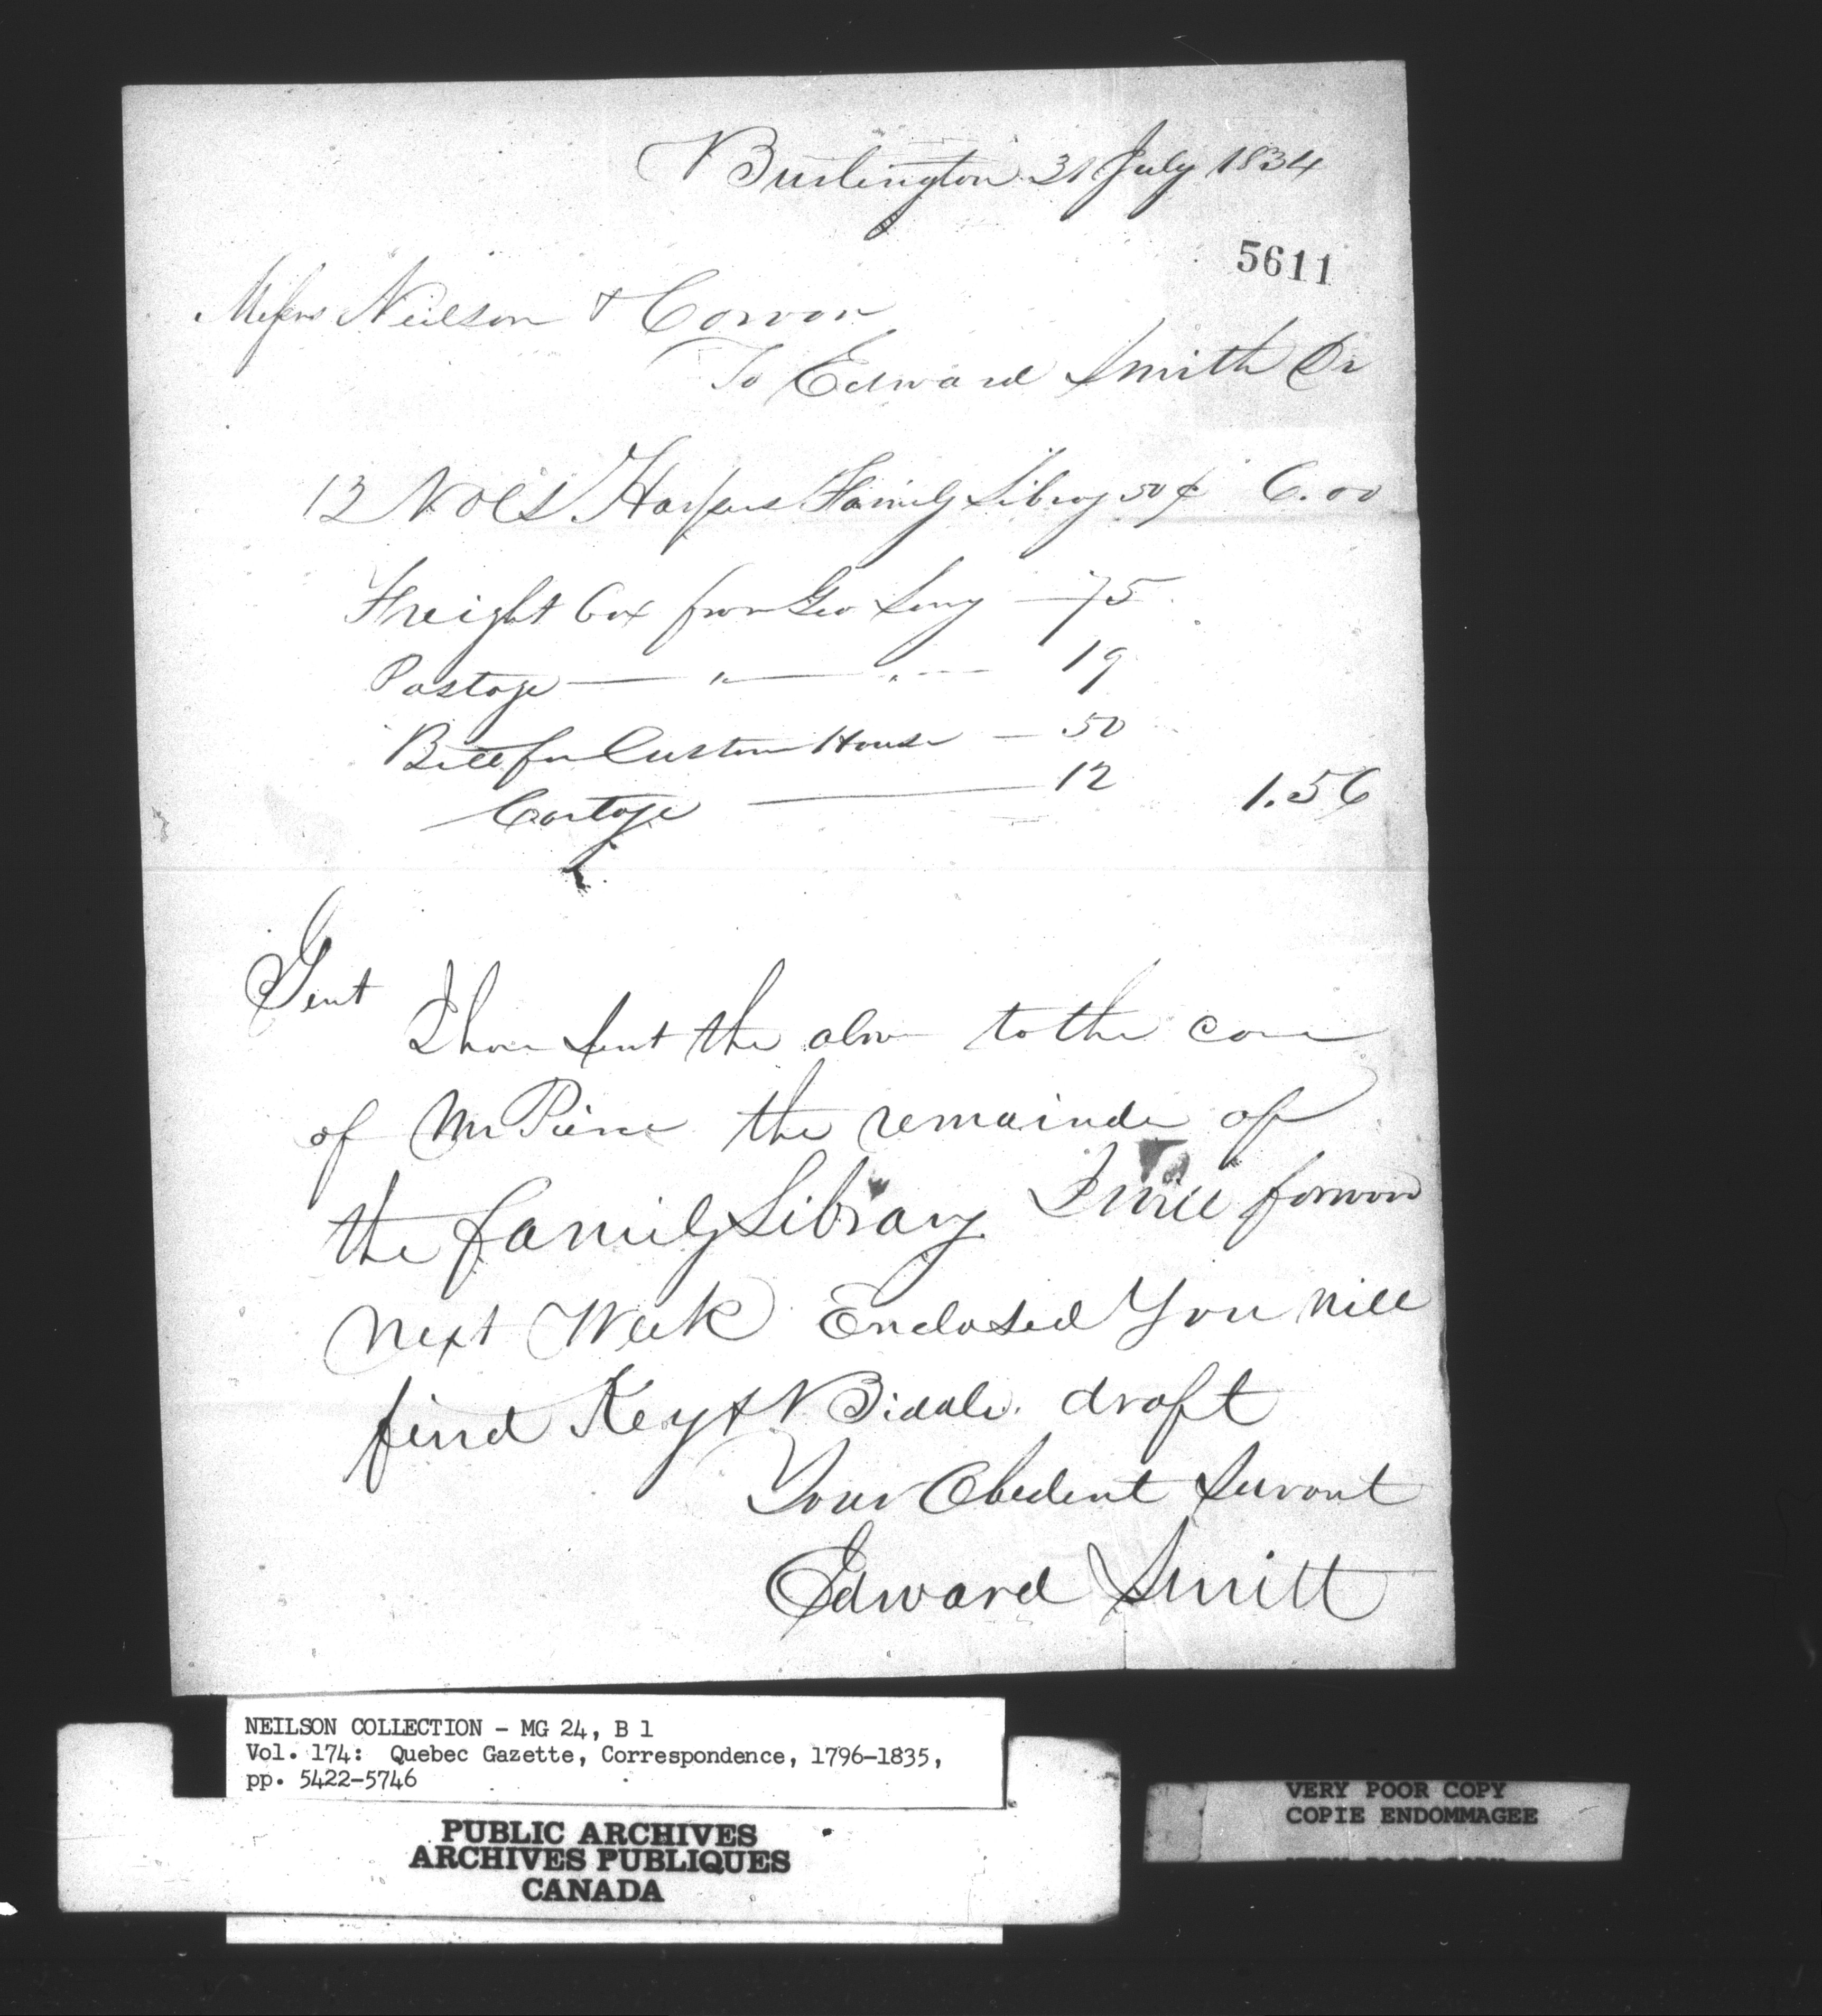 Burlington 31 July 1834
5611
Messrs Neilson & Cowan
To Edward Smith Dr
12 Vols Harpers Family Library 50¢ 6.00
Freight box from Geo Long — 75
Postage — " — " — 19
Bill for Custom House — 50
Cartage — 12 1.56
Gent
I have sent the above to the care
of Mr Pierce the remainder of
the family Library I will forward
next Week Enclosed You will
find Key & Biddle draft
Your Obedient Servant
Edward Smith
NEILSON COLLECTION - MG 24, B 1
Vol. 174: Quebec Gazette, Correspondence, 1796-1835,
pp. 5422-5746
PUBLIC ARCHIVES
ARCHIVES PUBLIQUES
CANADA
VERY POOR COPY
COPIE ENDOMMAGEE